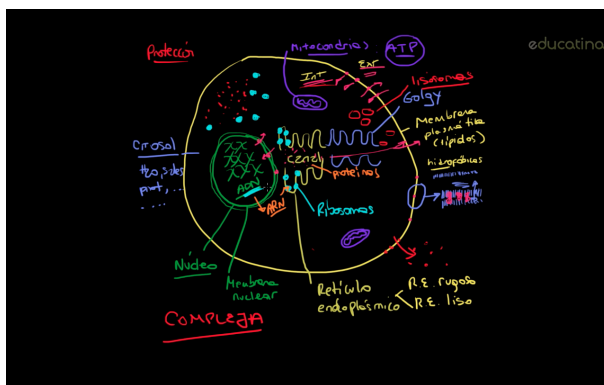 educatina
Protección
Mitocondrias
ATP
Int
Ext
lisosomas
Golgy
Membrana
plasmática
(lípidos)
hidrofóbicas
Citosol
H2O, sales
prot, ...
....
canal
proteínas
ADN
ARN
Ribosomas
Núcleo
Membrana
nuclear
Retículo
endoplásmico
R.E. rugoso
R.E. liso
COMPLEJA